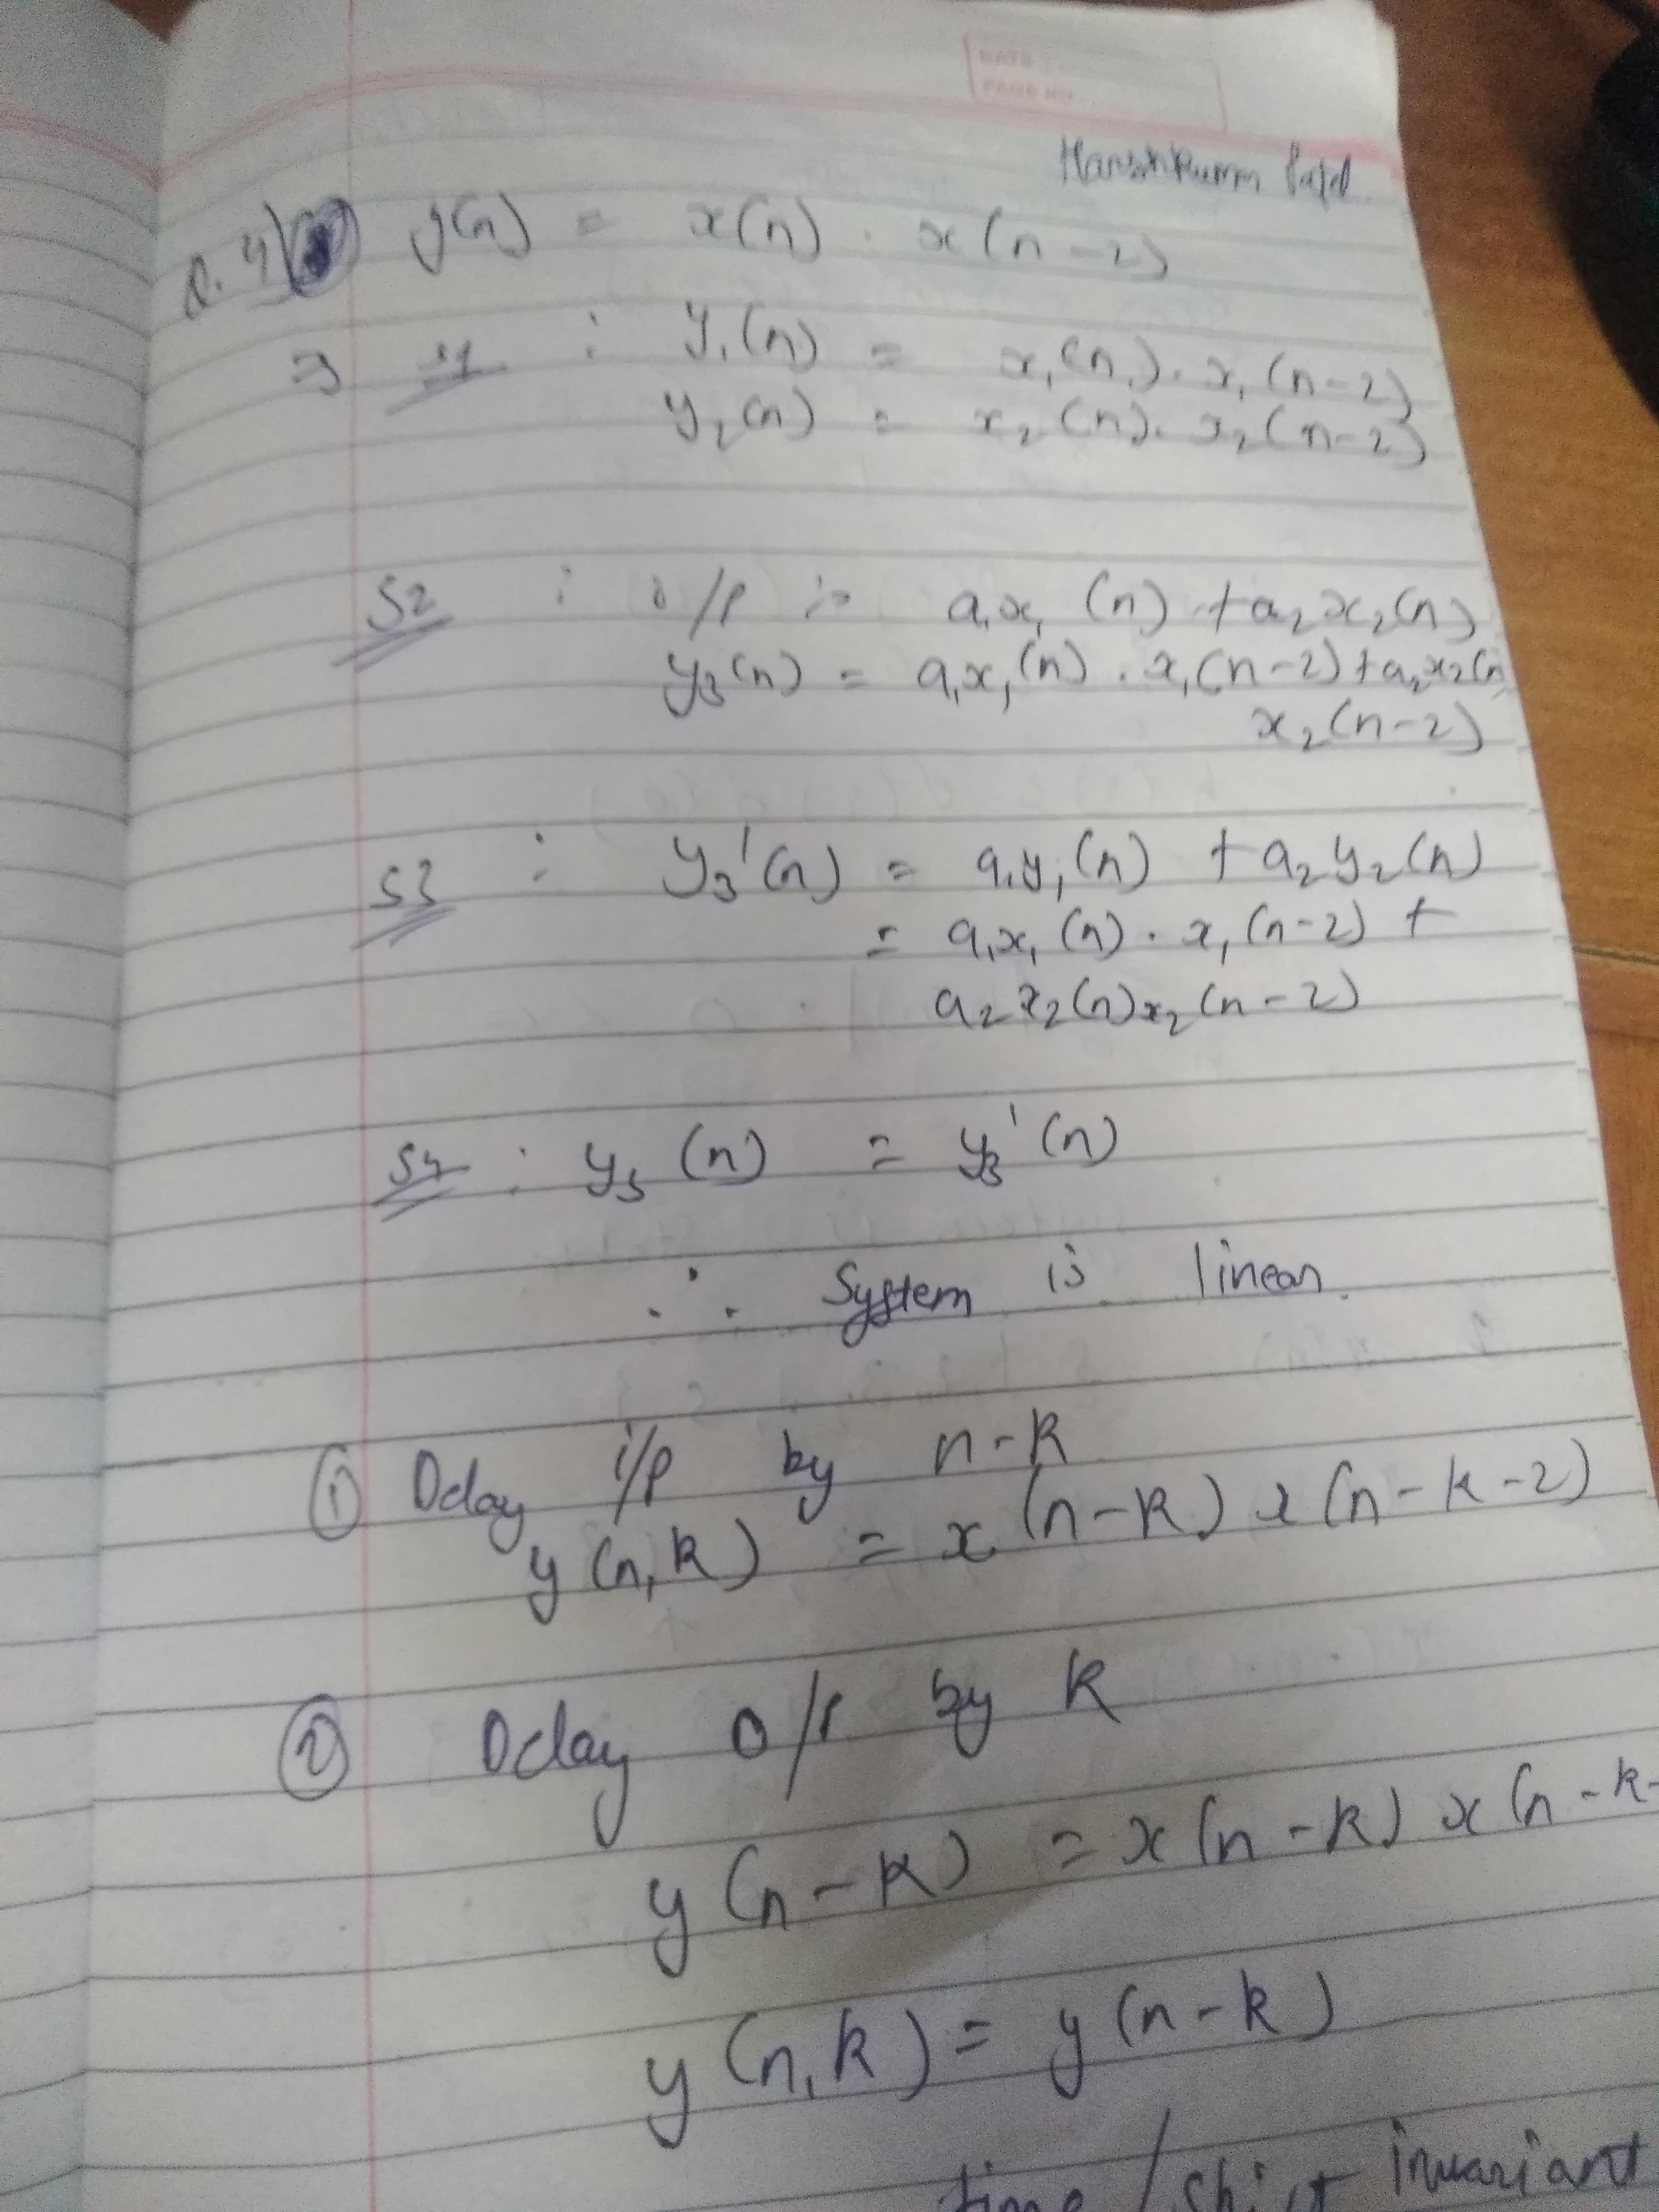 DATE
PAGE NO.
Q.4) y(n) = x(n) . x(n-2)
⇒ S1 : y₁(n) = x₁(n) . x₁(n-2)
y₂(n) = x₂(n) . x₂(n-2)
S2 : i/p is a₁x₁(n) + a₂x₂(n)
y₃(n) = a₁x₁(n) . x₁(n-2) + a₂x₂(n)
x₂(n-2)
S3 : y₃'(n) = a₁y₁(n) + a₂y₂(n)
= a₁x₁(n) . x₁(n-2) +
a₂x₂(n)x₂(n-2)
S4 : y₃(n) = y₃'(n)
∴ System is linear.
① Delay i/p by n-k
y(n,k) = x(n-k) x(n-k-2)
② Delay o/p by k
y(n-k) = x(n-k) x(n-k-
y(n,k) = y(n-k)
time / shift invariant